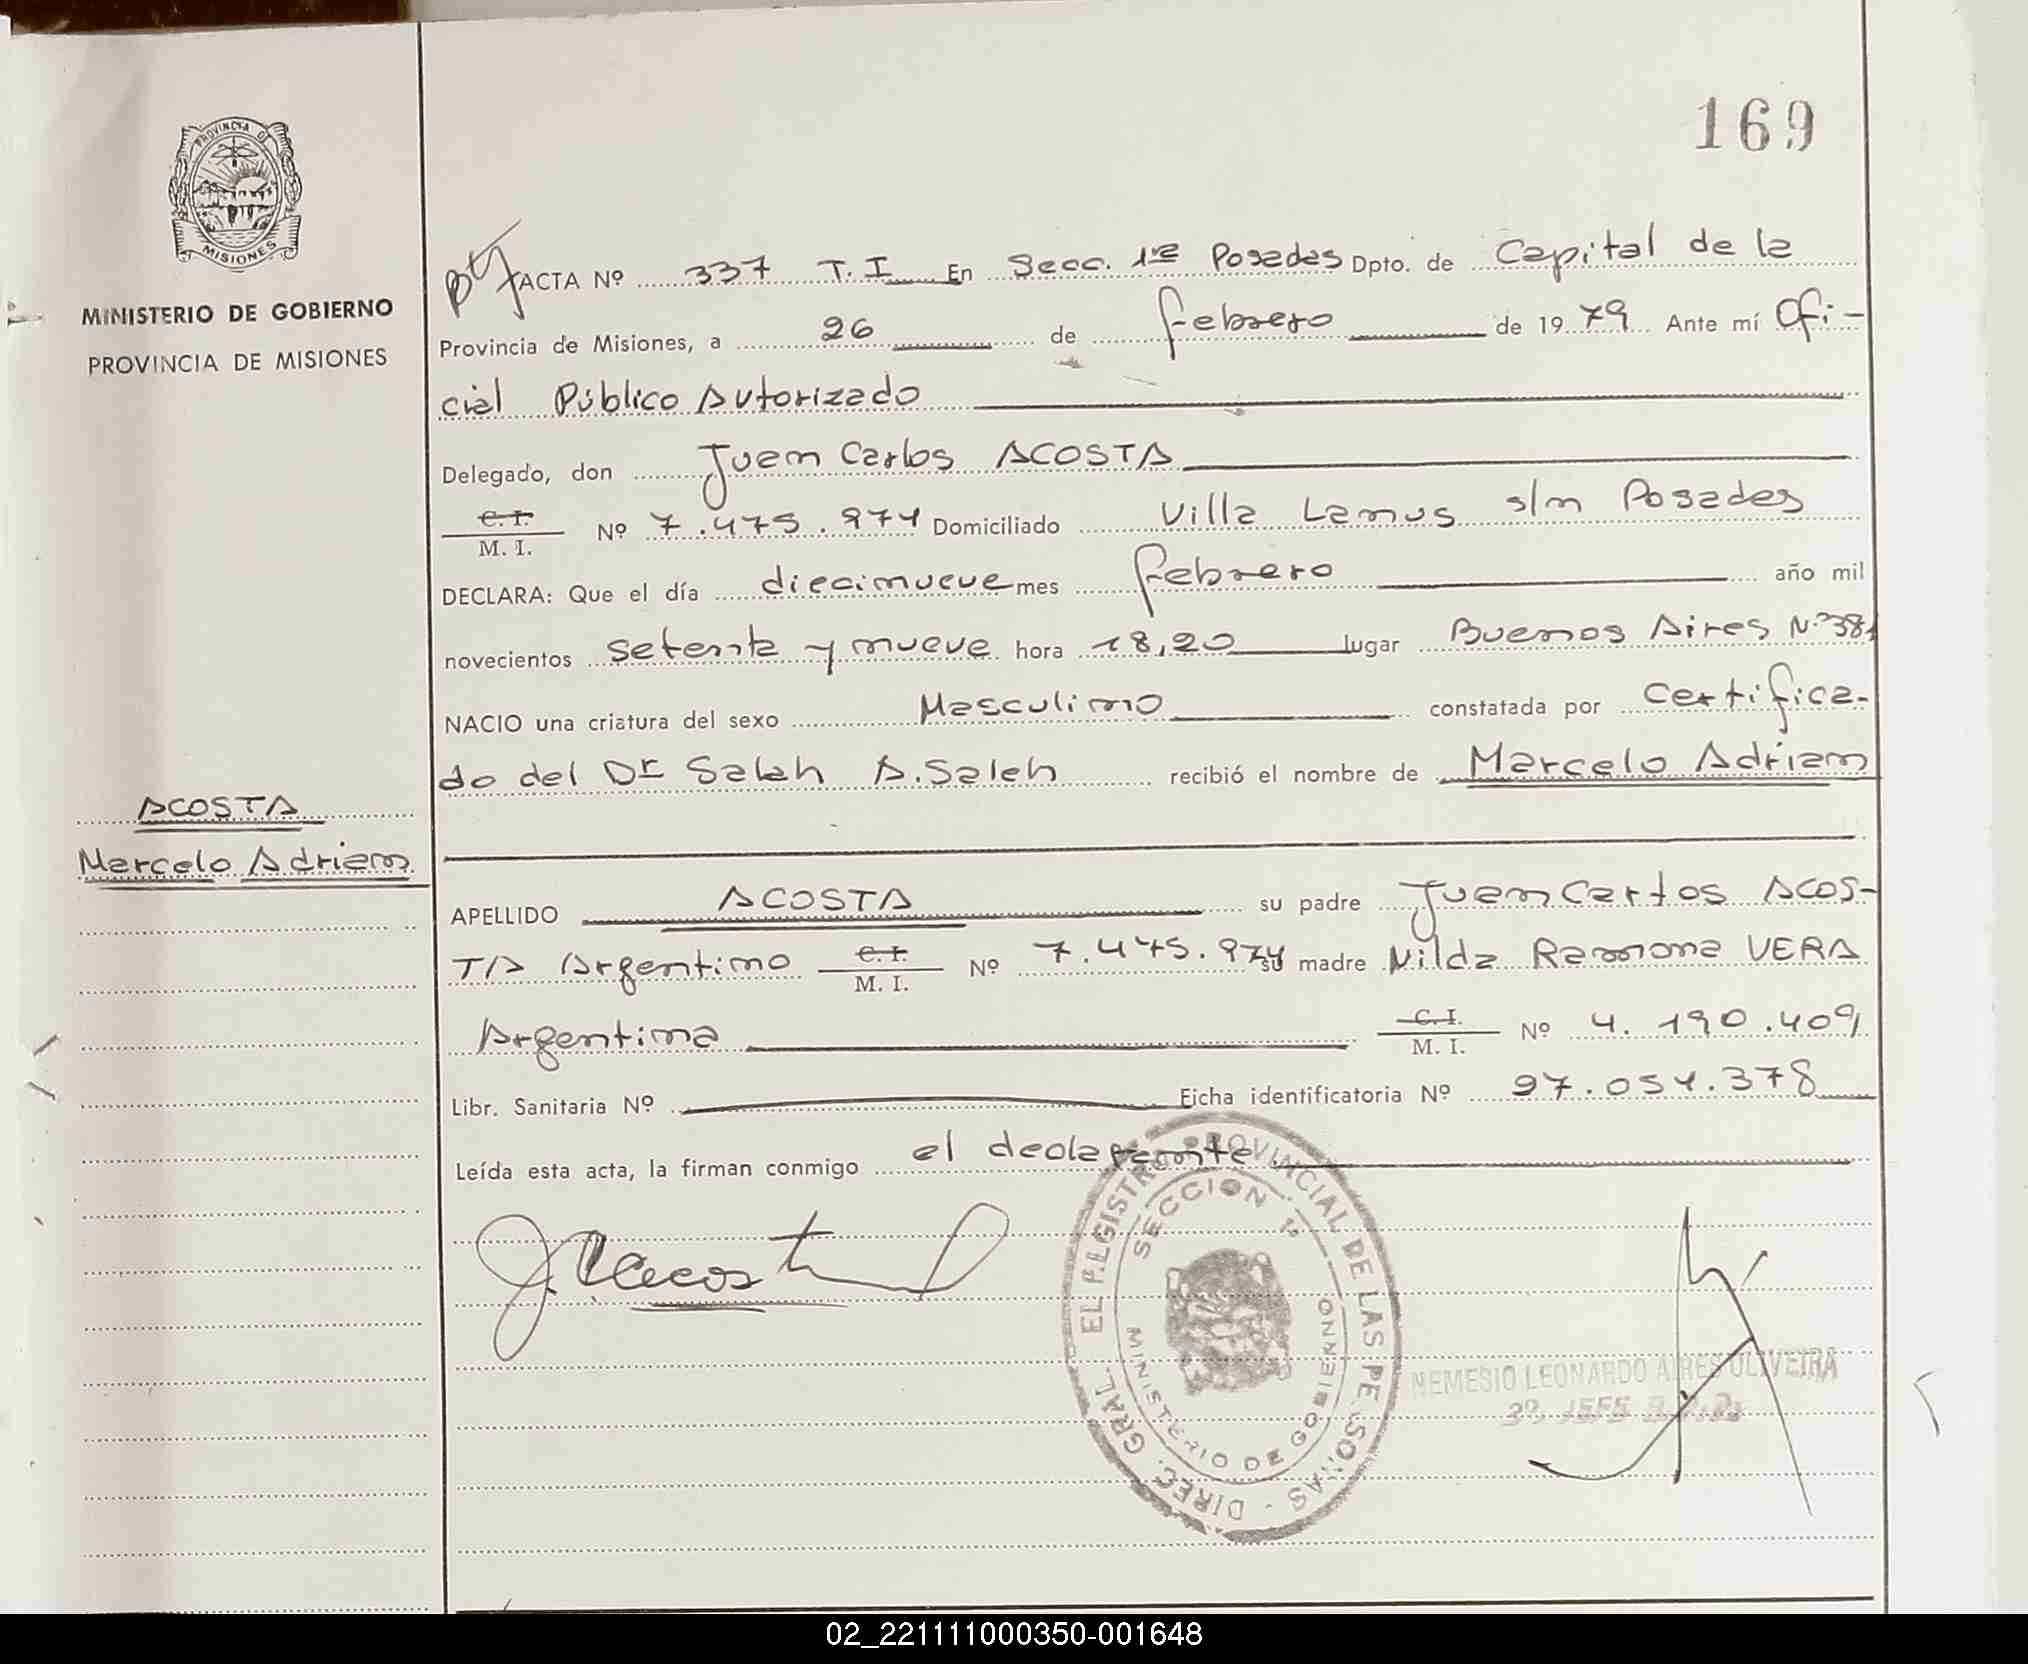 169
PROVINCIA DE
MISIONES
MINISTERIO DE GOBIERNO
PROVINCIA DE MISIONES
ACOSTA
Marcelo Adrian
ACTA Nº 337 T. I En Secc. 1ra Posadas Dpto. de Capital de la
Provincia de Misiones, a 26 de febrero de 1979 Ante mí Ofi-
cial Público Autorizado
Delegado, don Juan Carlos ACOSTA
C. I.
M. I. Nº 7.475.974 Domiciliado Villa Lanus s/n Posadas
DECLARA: Que el día diecinueve mes febrero año mil
novecientos setenta y nueve hora 18,20 lugar Buenos Aires Nº 381
NACIO una criatura del sexo Masculino constatada por certifica-
do del Dr Salah A. Saleh recibió el nombre de Marcelo Adrian
APELLIDO ACOSTA su padre Juan Carlos ACOS-
TA Argentino C. I. M. I. Nº 7.475.974 su madre Nilda Ramona VERA
Argentina C. I. M. I. Nº 4.190.409
Libr. Sanitaria Nº Ficha identificatoria Nº 97.051.378
Leída esta acta, la firman conmigo el declarante
J C Acosta
DIREC. GRAL. EL REGISTRO PROVINCIAL DE LAS PERSONAS
SECCION 1ª
MINISTERIO DE GOBIERNO
NEMESIO LEONARDO AIRES OLIVEIRA
02_221111000350-001648